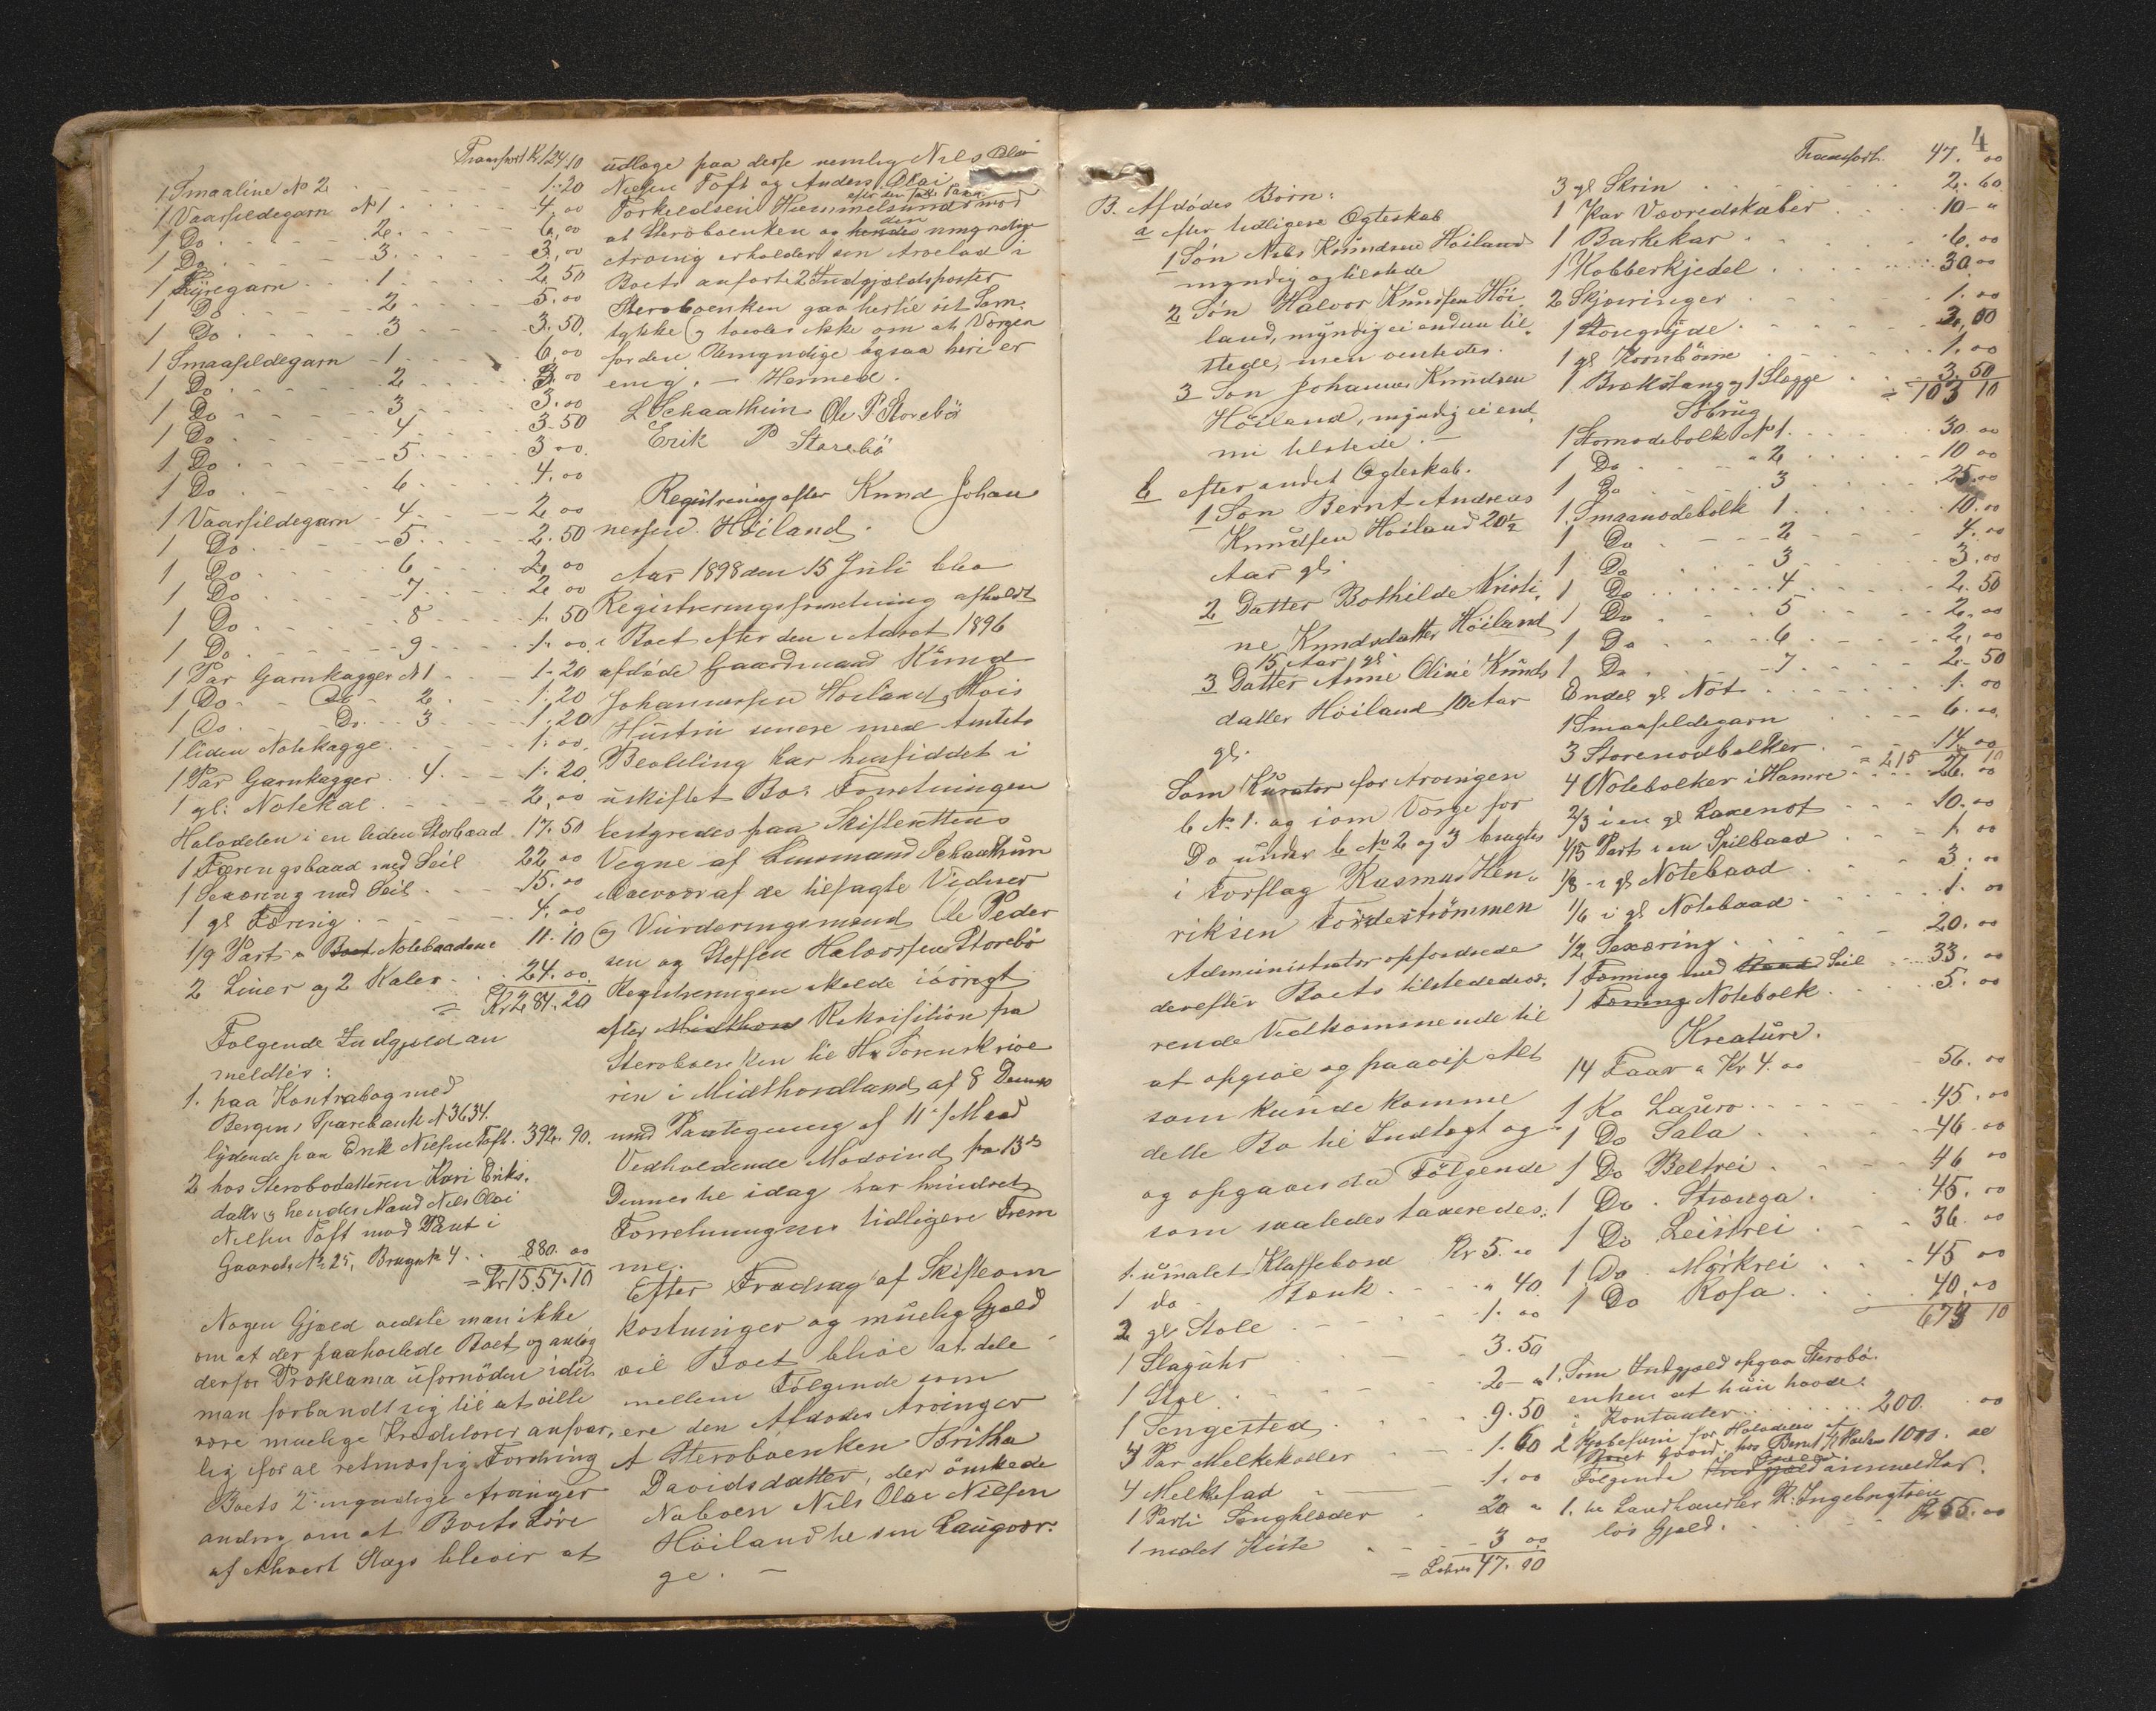 Transport Kr 124.10
1 Smaaline No 2 1.20
1 Vaarsildegarn No 1 4,00
1 Do 2 6,00
1 Do 3 3,00
1 garn 1 2,50
1 Do 2 5.00
1 Do 3 3.50
1 Smaasildegarn 1 6,00
1 Do 2 3.00
1 Do 3 3.00
1 Do 4 3.50
1 Do 5 3 00
1 Do 6 4.00
1 Vaarsildegarn 4 2,00
1 Do 5 2.50
1 Do 6 2,00
1 Do 7 2,00
1 Do 8 1.50
1 Do 9 1.00
1 Par Garnkagger No 1 1.20
1 Do Do 2 1.20
1 Do Do 3 1.20
1 liden Notekagge 1.00
1 Par Garnkagger 4 1.20
1 gl. Notekal 2,00
Halvdelen i en liden Storbaad 17.50
1 Færingsbaad med Seil 22,00
1 Sexæring med Seil 15.00
1 gl Færing 4.00
1/9 Part i Baad Notebaadene 11.10
2 Liner og 2 Kaler 24.00
= Kr 284.20
Følgende Indgjæld an
meldtes:
1. paa Kontrabog med
Bergens Sparebank No 3634.
lydende paa Erik Nielsen Toft. 392.90.
2 hos Stervbodatteren Kari Eriks-
datter og hendes Mand Nils Olai
Nielsen Toft mod Pant i
Gaards No 25, Brugs No 4 880.00
= Kr 1557.10
Nogen Gjæld vidste man ikke
om at der paahvilede Boet og ansaa
derfor Proklama ufornøden idet
man forbandt sig til at ville
være mulige Kreditorer ansvar-
lig for al retmæssig Fordring
Boets 2 myndige Arvinger
androg om at Boets Løsøre
af ethvert Slags bliver at
udlægge paa desse nemlig Nils Olai
Nielsen Toft og Anders Olai
Torkeldsen Hummelsund mod
at Stervboenken og hendes den umyndige
Arving erholder sin Arvelod i
Boets anførte 2de Indgjældsposter
Stervboenken gav hertil sit Sam-
tykke og tvivler ikke om at Værgen
for den Umyndige ogsaa heri er
enig. – Hermed.
L Schaathun Ole P. Storebø
Erik P Storebø
Registrering efter Knud Johan
nessen Høiland.
Aar 1898 den 15 Juli blev
Registreringsforretning afholdt
i Boet efter den i Aaret 1896
afdøde Gaardmand Knud
Johannessen Høiland, Hvis
Hustru senere med Amtets
Bevilling har hensiddet i
uskiftet Bo. Forretningen
bestyredes paa Skifterettens
Vegne af Lensmand Schaathun
i Overvær af de tilsagte Vidner
og Vurderingsmænd Ole Peder
sen og Steffen Halvorsen Storebø
Registreringen skede iøvrigt
efter Midthord Rekvisition fra
Stervboenken til Hr Sorenskrive
ren i Midthordland af 8 Dennes
med Paategning af 11 s/Maed
Vedholdende Modvind fra 13de
Dennes til idag har hindret
Forretningens tidligere Frem
me.
Efter Fradrag af Skifteom
kostninger og muelig Gjæld
vil Boet blive at dele
mellem Følgende som
ere den Afdødes Arvinger
A Stervboenken Britha
Davidsdatter, der ønskede
Naboen Nils Olai Nilsen
Høiland til sin Laugvær-
ge. –
4
B. Afdødes Børn:
a efter tidligere Egteskab
1 Søn Nils Knudsen Høiland
myndig og tilstede
2 Søn Halvor Knudsen Høi-
land, myndig ei endnu til-
stede, men ventedes.
3 Søn Johannes Knudsen
Høiland, myndig ei end
nu tilstede. –
b efter andet Egteskab.
1 Søn Bernt Andreas
Knudsen Høiland 20½
Aar gl.
2 Datter Bothilde Kristi-
ne Knudsdatter Høiland
15 Aar gl.
3 Datter Anne Oline Knuds
datter Høiland 10 Aar
gl.
Som Kurator for Arvingen
b No 1. og som Værge for
Do under b No 2 og 3 bragtes
i Forslag Rasmus Hen-
riksen Førdestrømmen
Administrator opfordrede
derefter Boets tilstedevæ-
rende Vedkommende til
at opgive og paavise Alt
som kunde komme
dette Bo til Indtægt og
og opgaves da Følgende
som saaledes taxeredes:
1 umalet Klaffebord Kr 5.00
1 do Bænk " 40
2 gl Stole 1.00
1 Slaguhr 3.50
1 Stol 2 – "
1 Sengested 9.50
3 Par Melkekoller 1.60
4 Melkefad 1.00
1 Parti Sengklæder 20 "
1 malet Kiste 3 00
= Latus 47.00
Transport. 47.00
3 gl Skrin 2.60
1 Par Vævredskaber 10 – "
1 Barkekar 6.00
1 Kobberkjedel 30.00
2 Skjæringer 1.00
1 Stengryde 2,00
1 gl Kornbøine 1.00
1 Brækstang og 1 Slægge 3.50
= 103 10
Søbrug
1 Stornodebolk No 1 30.00
1 Do " 2 10 00
1 Do 3 25.00
1 Smaanodebolk 1 10.00
1 Do 2 4.00
1 Do 3 3.00
1 Do 4 2.50
1 Do 5 2.00
1 Do 6 2,00
1 Do 7 2.50
Endel gl Not 1.00
1 Smaasildegarn 6.00
3 Storenodbolker 14.00
4 Notebolker i Hamre = 215 10
2/3 i en gl Laxenot 10.00
1/15 Part i en Spilbaad 1.00
1/8 i gl Notebaad 3.00
1/6 i gl Notebaad 1.00
1/2 Sexæring 20.00
1 Færing med Baad Seil 33.00
1 Færing Notebolk 5.00
Kreature.
14 Faar a Kr 4.00 56.00
1 Ko Lauro 45.00
1 Do Sala 46.00
1 Do Beltrei 46 00
1 Do Stranga 45.00
1 Do Leistrei 36.00
1 Do Mørkrei 45 00
1 Do Rosa 40.00
673 10
1. Som Indgjæld opgav Stervbo-
enken at hun havde.
i Kontanter 200.00
2 Kjøbesum for Halvdelen af
Følgende Indgjæld Gjæld anmeldtes.
1. til Landhandler R. Ingebrigtsen
løs Gjæld. Kr 55.00